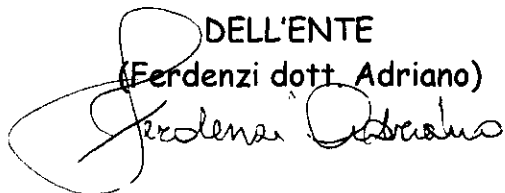 DELL'ENTE
(Ferdenzi dott. Adriano)
Ferdenzi Adriano